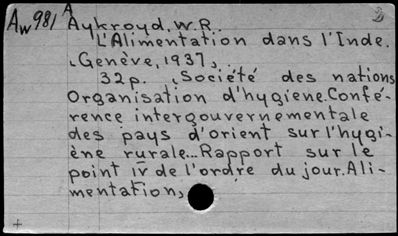 Aw981 A
Aykroyd, W.R..
L'Alimentation dans l'Inde.
Genève, 1937,
32p. Société des nations
Organisation d'hygiene.Confé-
rence intergouvernementale
des pays d'orient sur l'hygi-
ène rurale...Rapport sur le
point IV de l'ordre du jour.Ali-
mentation,